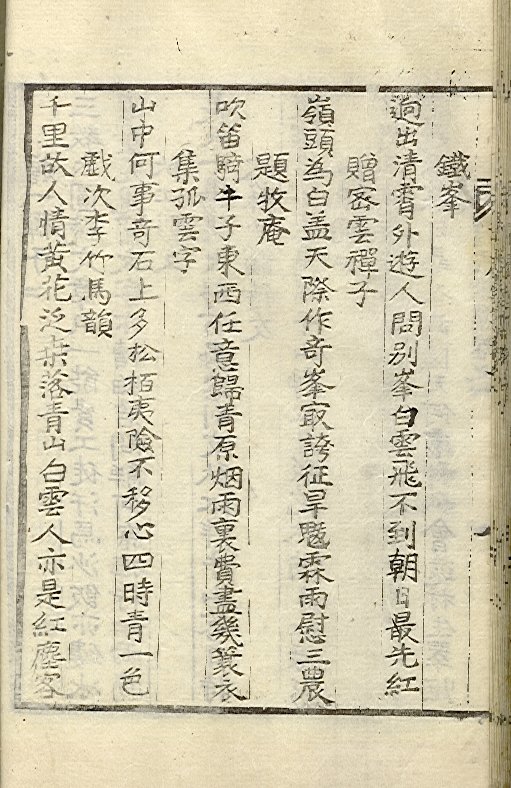 鐵峯
逈出清霄外遊人問別峯白雲飛不到朝日最先紅
贈密雲禪子
嶺頭為白盖天際作奇峯冣誇征旱魃霖雨慰三農
題牧庵
吹笛騎牛子東西任意歸青原烟雨裏費盡幾蓑衣
集孤雲字
山中何事奇石上多松栢夷險不移心四時青一色
戱次李竹馬韻
千里故人情黃花泛桒落青山白雲人亦是紅塵客